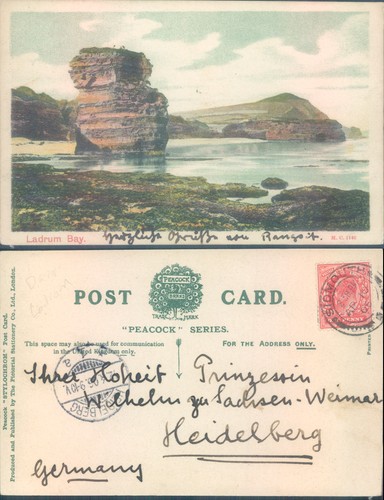 Ladrum Bay.
Herzliche Grüße von Rangsit.
POST CARD.
PEACOCK
TRADE MARK
"PEACOCK" SERIES.
This space may also be used for communication
in the United Kingdom only.
FOR THE ADDRESS ONLY.
Peacock "STYLOCHROM" Post Card.
Produced and Published by The Pictorial Stationery Co., Ltd., London.
SIDMOUTH
HEIDELBERG
Ihre Hoheit Prinzessin
Wilhelm zu Sachsen-Weimar
Heidelberg
Germany